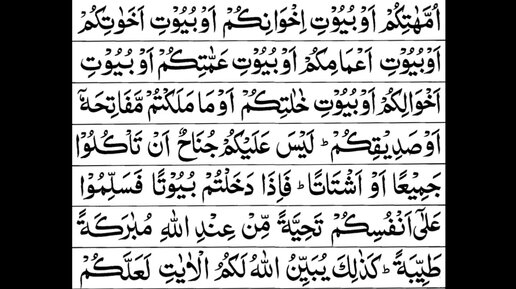 اُمَّهٰتِكُمْ اَوْ بُيُوْتِ اِخْوَانِكُمْ اَوْ بُيُوْتِ اَخَوٰتِكُمْ
اَوْ بُيُوْتِ اَعْمَامِكُمْ اَوْ بُيُوْتِ عَمّٰتِكُمْ اَوْ بُيُوْتِ
اَخْوَالِكُمْ اَوْ بُيُوْتِ خٰلٰتِكُمْ اَوْ مَا مَلَكْتُمْ مَّفَاتِحَهٗۤ
اَوْ صَدِيْقِكُمْ ؕ لَيْسَ عَلَيْكُمْ جُنَاحٌ اَنْ تَاْكُلُوْا
جَمِيْعًا اَوْ اَشْتَاتًا ؕ فَاِذَا دَخَلْتُمْ بُيُوْتًا فَسَلِّمُوْا
عَلٰۤى اَنْفُسِكُمْ تَحِيَّةً مِّنْ عِنْدِ اللّٰهِ مُبٰرَكَةً
طَيِّبَةً ؕ كَذٰلِكَ يُبَيِّنُ اللّٰهُ لَكُمُ الْاٰيٰتِ لَعَلَّكُمْ